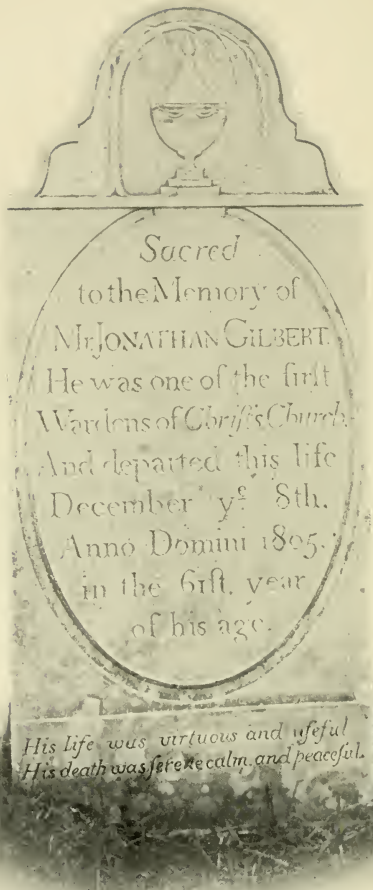 Sacred
to the Memory of
Mr. JONATHAN GILBERT.
He was one of the firſt
Wardens of Chriſt's Church.
And departed this life
December yᵉ 8th.
Anno Domini 1805.
in the 61ſt. year
of his age.
His life was virtuous and uſeful
His death was ſerene calm, and peaceful.